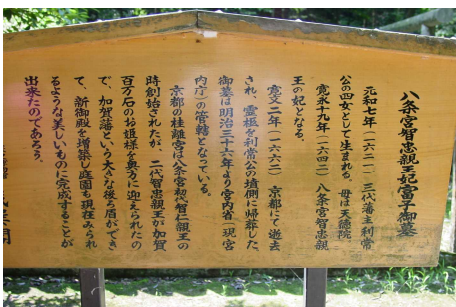 八条宮智忠親王妃富子御墓
元和七年(一六二一)三代藩主利常
公の四女として生まれる。母は天徳院
寛永十九年(一六四二)八条宮智忠親
王の妃となる。
寛文二年(一六六二)京都にて逝去
され、霊柩を利常公の墳側に帰葬した。
御墓は明治三十六年より宮内省(現宮
内庁)の管轄となっている。
京都の桂離宮は八条宮初代智仁親王の
時創始されたが、二代智忠親王が加賀
百万石のお姫様を奥方に迎えられたの
で、加賀藩という大きな後ろ盾ができ
て、新御殿を増築し庭園も現在みられ
るような美しいものに完成することが
出来たのであろう。